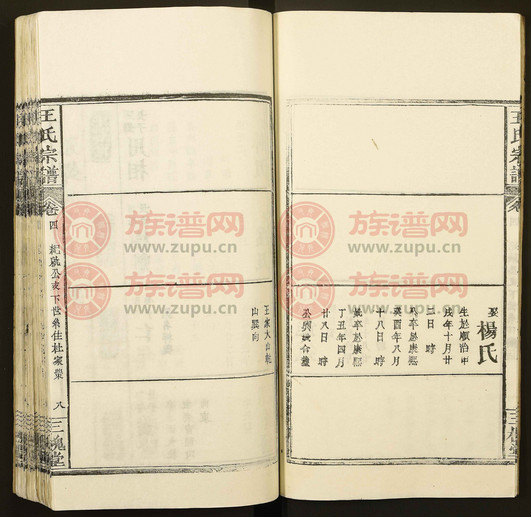 王氏宗譜
卷
三槐堂
娶
楊氏
生於順治甲
戌年十月廿
二日 時
卒於康熙
癸酉年八月
十八日 時
卒於康熙
丁丑年四月
廿八日 時
公與氏合塋
王家大山乾
山巽向
王氏宗譜
卷四
公支下世系住杜家
八
三槐堂
族谱网
www.zupu.cn
族谱网
www.zupu.cn
族谱网
www.zupu.cn
族谱网
www.zupu.cn